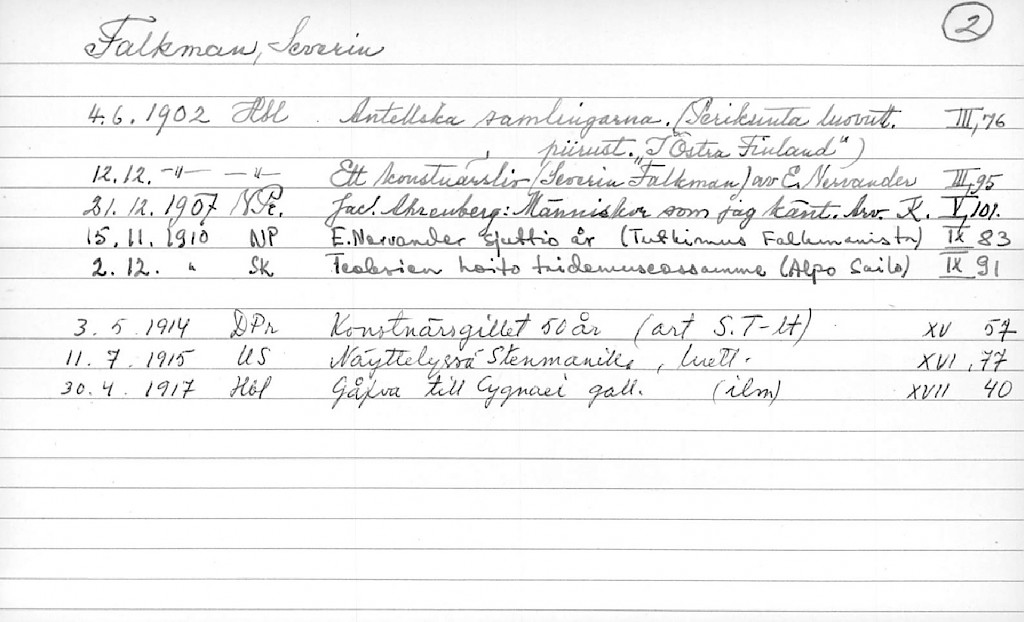 2
Falkman, Severin
4.6.1902 Hbl Antellska samlingarna. (Perikunta luovutt. III,76
piirust. "I Östra Finland")
12.12. -"- -"- Ett konstnärsliv (Severin Falkman) av E. Nervander III,95
21.12.1907 N.Pr. Jac. Ahrenberg: Människor som jag känt. Arv. K. V,101.
15.11.1910 NP E. Nervander sjuttio år (Tutkimus Falkmanista) IX 83
2.12. " SK Teoksien hoito taidemuseossamme (Alpo Sailo) IX 91
3.5.1914 DPr Konstnärsgillet 50 år (art S.T-lt) XV 57
11.7.1915 US Näyttelyssä Stenmanilla, luett. XVI,77
30.4.1917 Hbl Gåfva till Cygnaei gall. (ilm) XVII 40